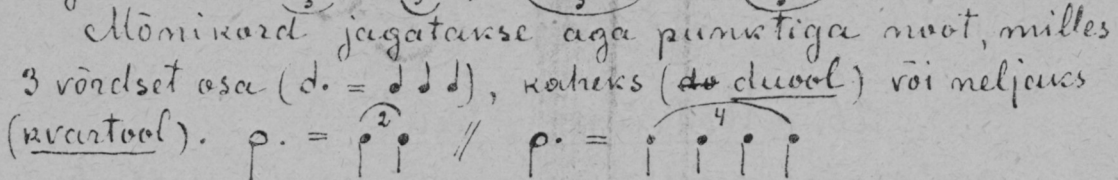 Mõnikord jagatakse aga punktiga noot, milles
3 võrdset osa (𝅗𝅥. = ♩ ♩ ♩), kaheks (do duool) või neljaks
(kvartool). 𝅗𝅥. = ♩ ♩ 2 // 𝅗𝅥. = ♩ ♩ ♩ ♩ 4